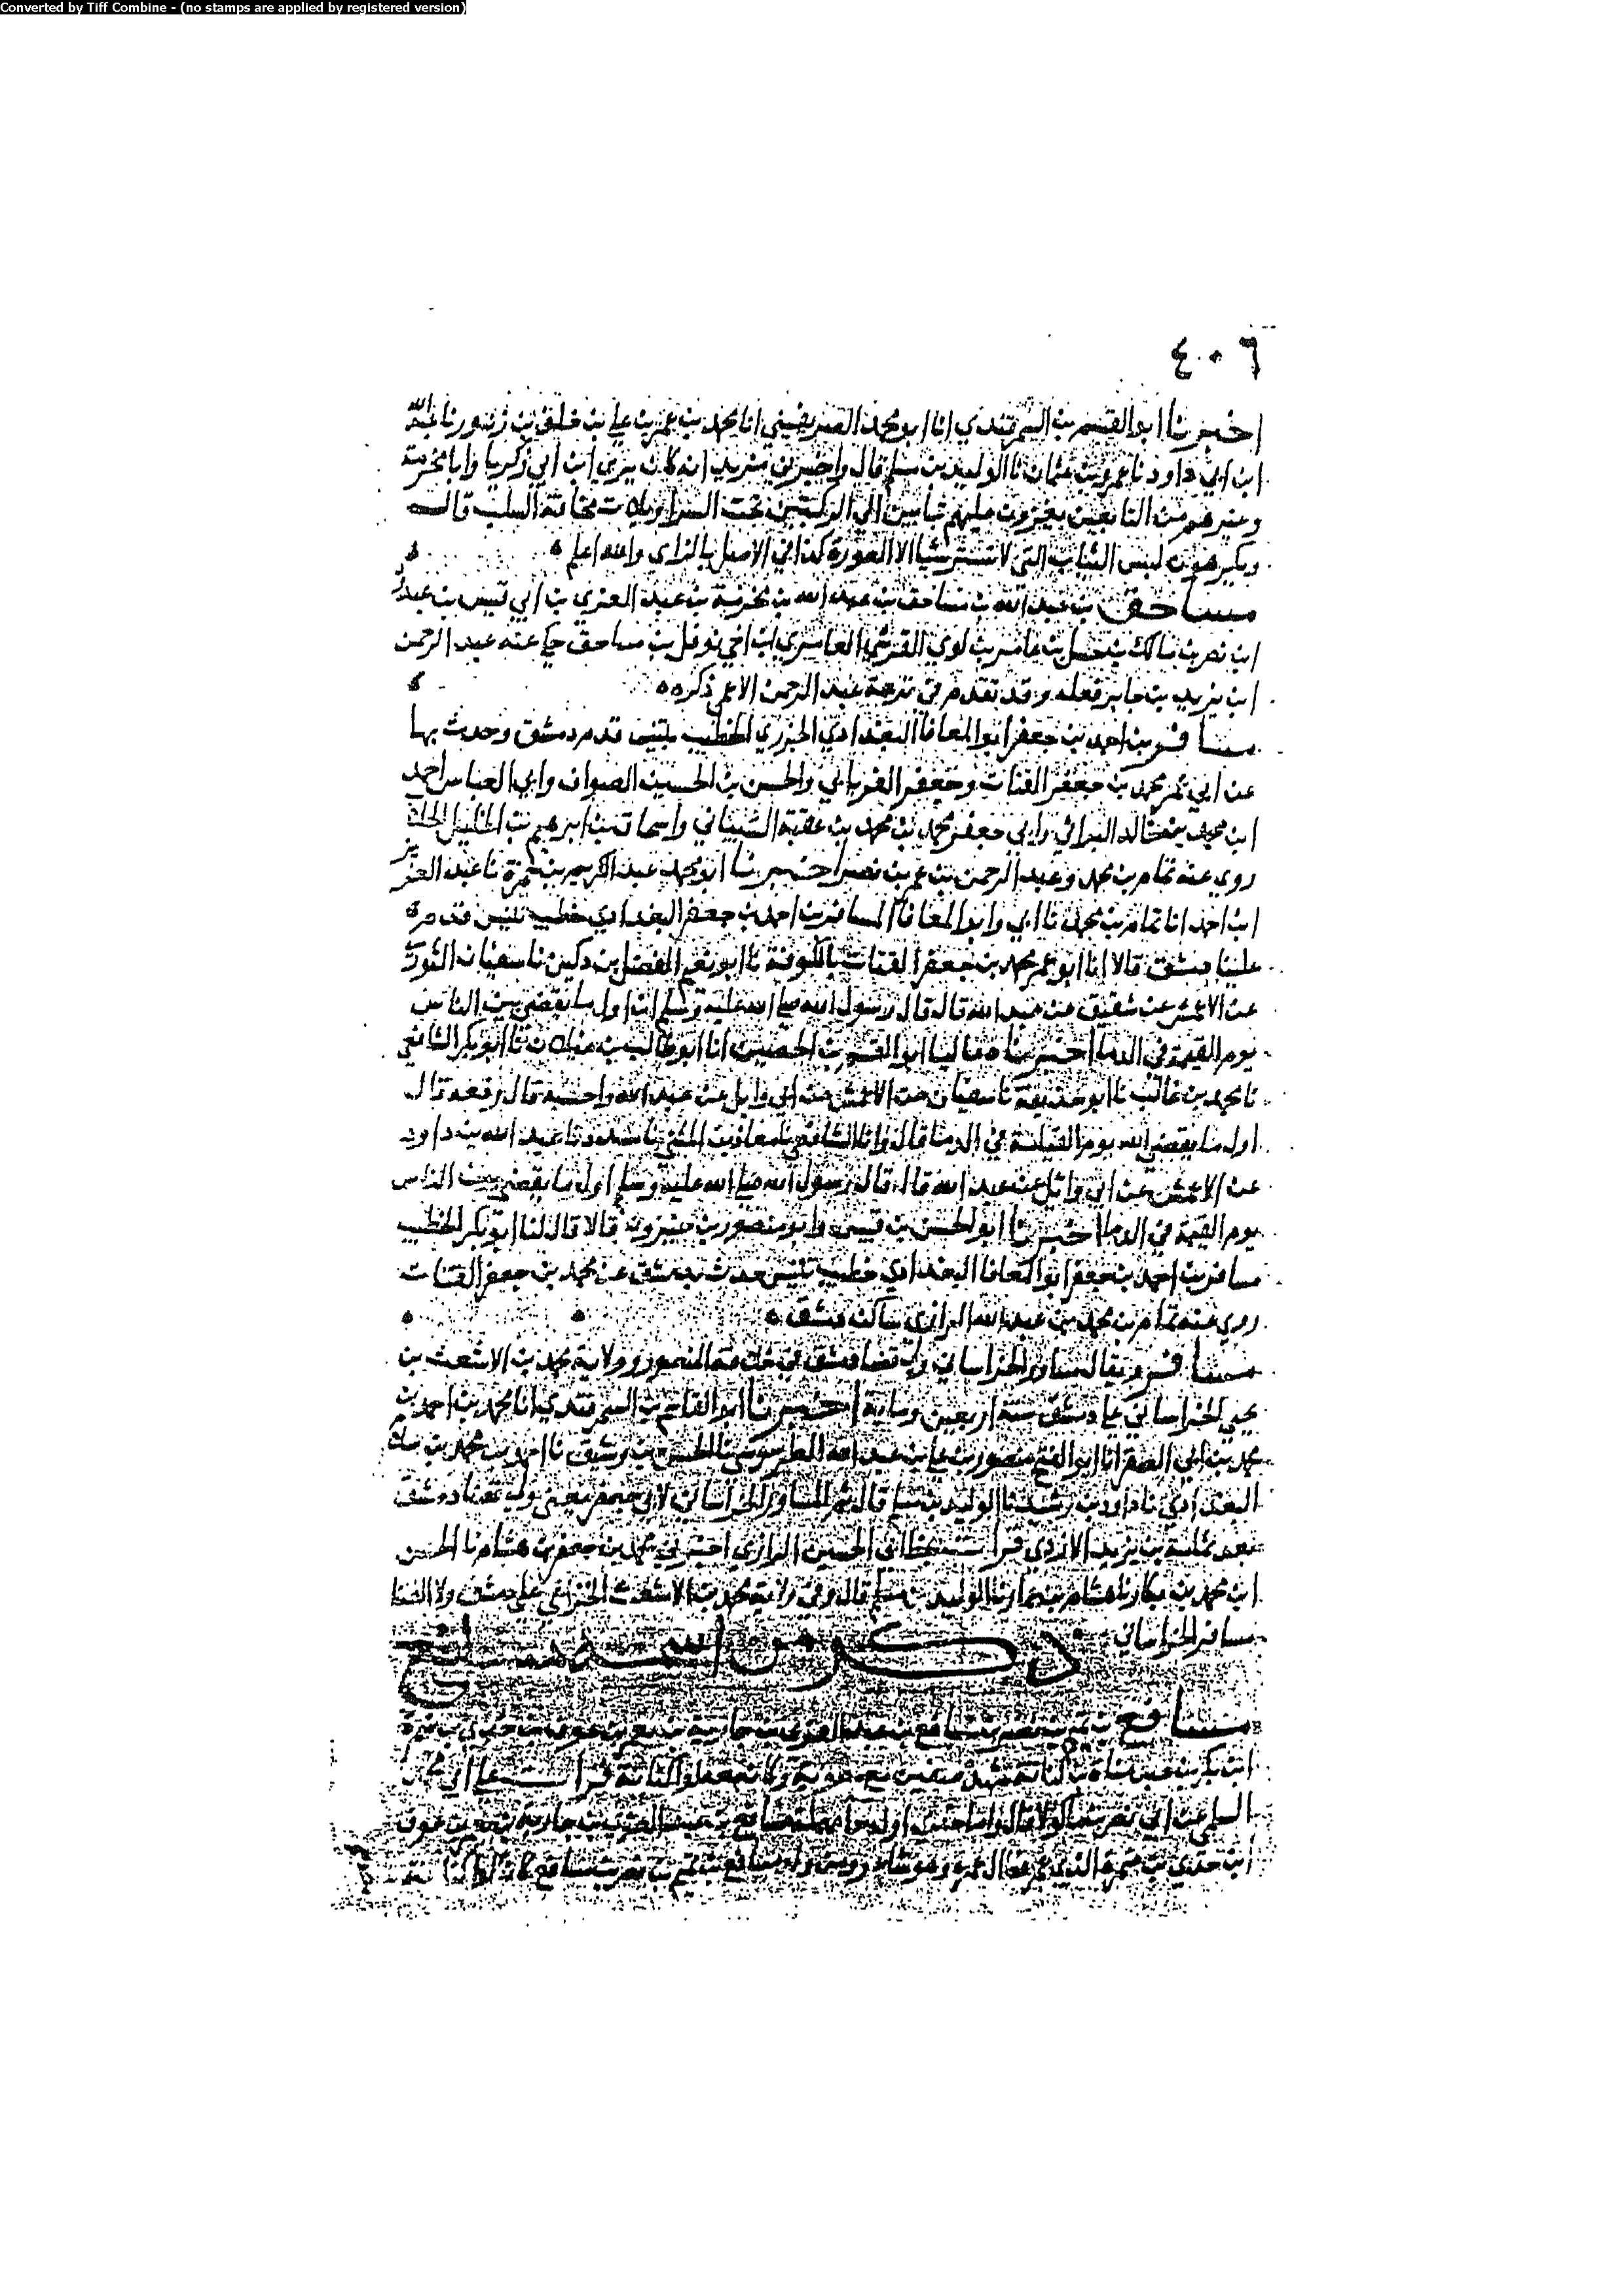 Converted by Tiff Combine - (no stamps are applied by registered version)
٤٠٦
اخبرنا ابو القسم بن السمرقندي انا ابو محمد الصريفيني انا محمد بن عمر بن علي بن خلف بن زنبور نا عبد الله
ابن ابي داود نا عمرو بن عثمان نا الوليد بن مسلم قال واخبرني من يزيد انه كان يري ابن ابي زكريا وابا مخرمة
وغيرهم من التابعين يغزون عليهم تبابين الي الركبتين تحت السراويلات مخافة السلب قال
ويكرهون لبس الثياب التي لا تستر شيا الا العورة كذا في الاصل بالزاي والله اعلم
مساحق بن عبد الله بن مساحق بن عبد الله بن مخرمة بن عبد العزي بن ابي قيس بن عبد ود
ابن نصر بن مالك بن حسل بن عامر بن لوي القرشي العامري ابن اخي نوفل بن مساحق حكي عنه عبد الرحمن
ابن يزيد بن جابر فعله وقد تقدم في ترجمة عبد الرحمن الاعمي ذكره
مسافر بن احمد بن جعفر ابو المعافا البغدادي الجزري الخطيب بتنيس قدم دمشق وحدث بها
عن ابي عمر محمد بن جعفر القتات وجعفر الفريابي والحسن بن الحسين الصواف وابي العباس احمد
ابن محمد بن خالد البراثي وابي جعفر محمد بن محمد بن عقبة الشيباني واسحاق بن ابرهيم بن الخليل الجلاب
روي عنه تمام بن محمد وعبد الرحمن بن عمر بن نصر اخبرنا ابو محمد عبد الكريم بن حمزة نا عبد العزيز
ابن احمد انا تمام بن محمد نا ابي وابو المعافا المسافر بن احمد بن جعفر البغدادي خطيب تنيس قدم
علينا دمشق قالا انا ابو عمر محمد بن جعفر القتات بالكوفة نا ابو نعيم الفضل بن دكين نا سفيان الثوري
عن الاعمش عن شقيق عن عبد الله قال قال رسول الله صلي الله عليه وسلم ان اول ما يقضي بين الناس
يوم القيمة في الدما اخبرناه عاليا ابو القسم بن الحصين انا ابو طالب بن غيلان نا ابو بكر الشافعي
نا محمد بن غالب نا ابو حذيفة نا سفيان عن الاعمش عن ابي وايل عن عبد الله واحسبه قال رفعه قال
اول ما يقضي الله يوم القيامة في الدما قال وانا الشافعي نا معاذ بن المثني نا مسدد نا عبد الله بن داود
عن الاعمش عن ابي وائل عن عبد الله قال قال رسول الله صلي الله عليه وسلم اول ما يقضي بين الناس
يوم القيمة في الدما اخبرنا ابو الحسن بن قبيس وابو منصور بن خيرون قالا قال لنا ابو بكر الخطيب
مسافر بن احمد بن جعفر ابو المعافا البغدادي خطيب تنيس حدث بدمشق عن محمد بن جعفر القتات
روي عنه تمام بن محمد بن عبد الله الرازي ساكن دمشق
مسافر ويقال مساور الخراساني ولي قضا دمشق في خلافة المنصور وولاية محمد بن الاشعث بن
يحيي الخراساني علي دمشق سنة اربعين وماية اخبرنا ابو القاسم بن السمرقندي انا محمد بن احمد بن
محمد بن ابي الصقر انا ابو الفتح منصور بن علي بن عبد الله الطرسوسي نا الحسن بن رشيق نا احمد بن محمد بن سلم
البغدادي نا داود بن رشيد نا الوليد بن مسلم قال ثم المساور الخراساني لابي جعفر يعني ولي قضا دمشق
بعد ثمامة بن يزيد الازدي قرات بخط ابي الحسين الرازي اخبرني محمد بن جعفر بن هشام نا الحسن
ابن محمد بن بكار نا هشام بن عمار نا الوليد بن مسلم قال وفي ولاية محمد بن الاشعث الخزاعي علي دمشق ولا القضا
مسافر الخراساني
ذكر من اسمه مسافع
مسافع بن تميم بن نصر بن مسافع بن عبد العزي بن حارثة بن يعمر بن عوف بن جدي بن ضمرة
ابن بكر بن عبد مناة بن كنانة شهد صفين مع معوية وكان معه لوا كنانة قرات علي ابي محمد
السلمي عن ابي نصر بن ماكولا قال واما حدي اوله حا مهملة مسافع بن عبد العزي بن حارثة بن يعمر بن عوف
ابن حدي بن ضمرة الذي عمر فطال عمره وهو شاعر ومن ولده مسافع بن تميم بن نصر بن مسافع كان